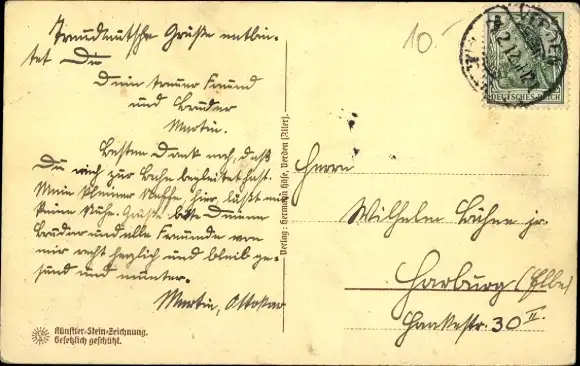 Treudeutsche Grüße entbie-
tet Dir
Dein treuer Freund
und Bruder
Martin.
Besten Dank noch, daß
Du mich zur Bahn begleitet hast.
Mein kleiner Neffe, hier, läßt mir
keine Ruhe. Grüße bitte Deinen
Bruder und alle Freunde von
mir recht herzlich und bleib ge-
sund und munter.
Martin, Ottokar
Künstler-Stein-Zeichnung.
Gesetzlich geschützt.
Verlag: Hermann Häse, Verden (Aller).
10.-
VERDEN
DEUTSCHES REICH
Herrn
Wilhelm Bühne jr.
Harburg (Elbe)
Haakestr. 30 II.